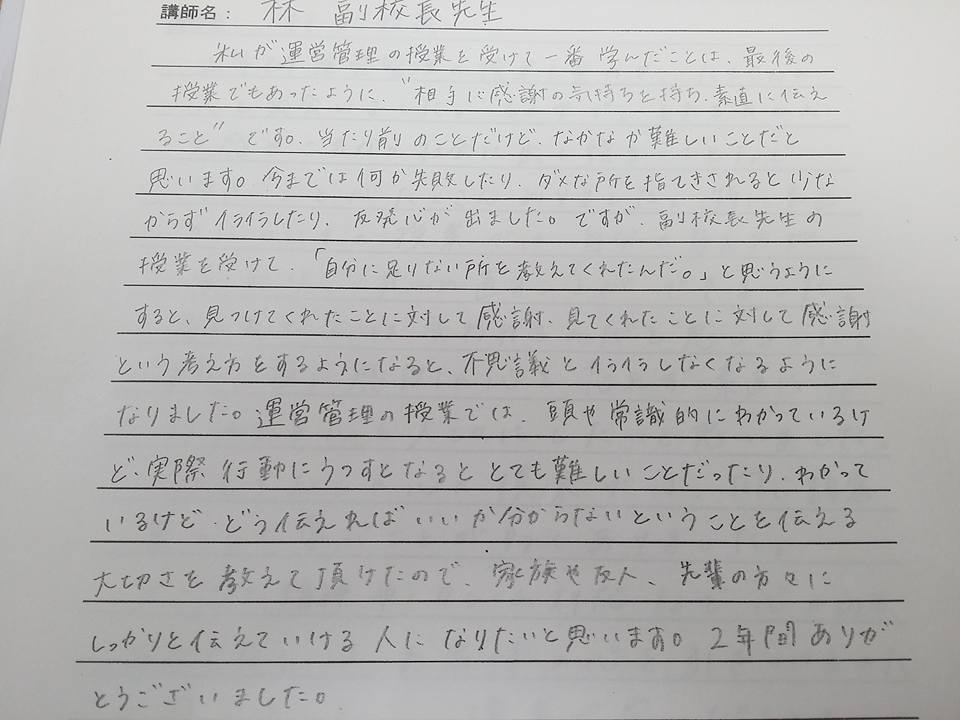 講師名： 林 副校長先生
私が運営管理の授業を受けて一番学んだことは、最後の
授業でもあったように、"相手に感謝の気持ちを持ち、素直に伝え
ること"です。当たり前のことだけど、なかなか難しいことだと
思います。今までは何か失敗したり、ダメな所を指てきされると少な
からずイライラしたり、反発心が出ました。ですが、副校長先生の
授業を受けて、「自分に足りない所を教えてくれたんだ。」と思うように
すると、見つけてくれたことに対して感謝、見てくれたことに対して感謝
という考え方をするようになると、不思議とイライラしなくなるように
なりました。運営管理の授業では、頭や常識的にわかっているけ
ど、実際行動にうつすとなるととても難しいことだったり、わかって
いるけど、どう伝えればいいか分からないということを伝える
大切さを教えて頂けたので、家族や友人、先輩の方々に
しっかりと伝えていける人になりたいと思います。2年間ありが
とうございました。